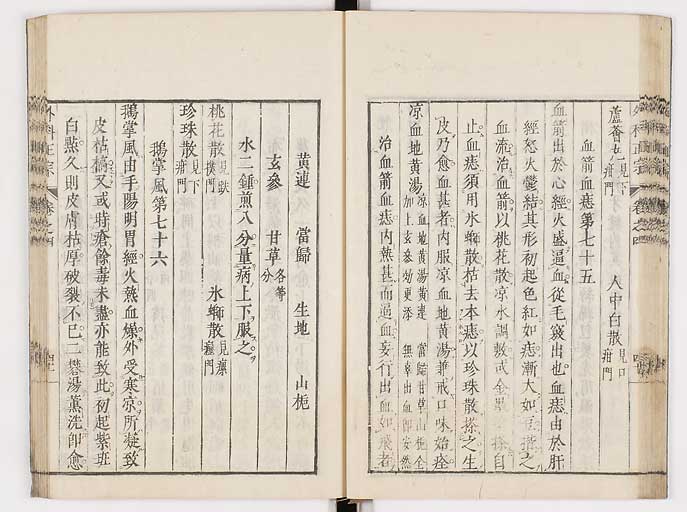 蘆薈丸見下疳門　人中白散見口疳門
血箭血痣第七十五
血箭出於心經火盛逼血從毛竅出也血痣由於肝
經怒火鬱結其形初起色紅如痣漸大如豆揩之
血流治血箭以桃花散凉水調敷或金墨
止血痣須用氷螄散枯去本痣以珍珠散搽之生
皮乃愈血甚者內服凉血地黃湯兼戒口味始痊
凉血地黃湯 凉血地黃湯黃連 當歸甘草山梔全 加上玄參効更添 無辜出血卽安然
治血箭血痣內熱甚而逼血妄行出血如飛者
黃連　當歸　生地　山梔
玄參　甘草各等分
水二鍾煎八分量病上下服之
桃花散　氷螄散見瘰癧門
珍珠散見下疳門
鵝掌風第七十六
鵝掌風由手陽明胃經火熱血燥外受寒凉所凝致
皮枯槁又或時瘡餘毒未盡亦能致此初起紫班
白㸃久則皮膚枯厚破裂不已二礬湯薰洗卽愈
外科正宗 卷之四